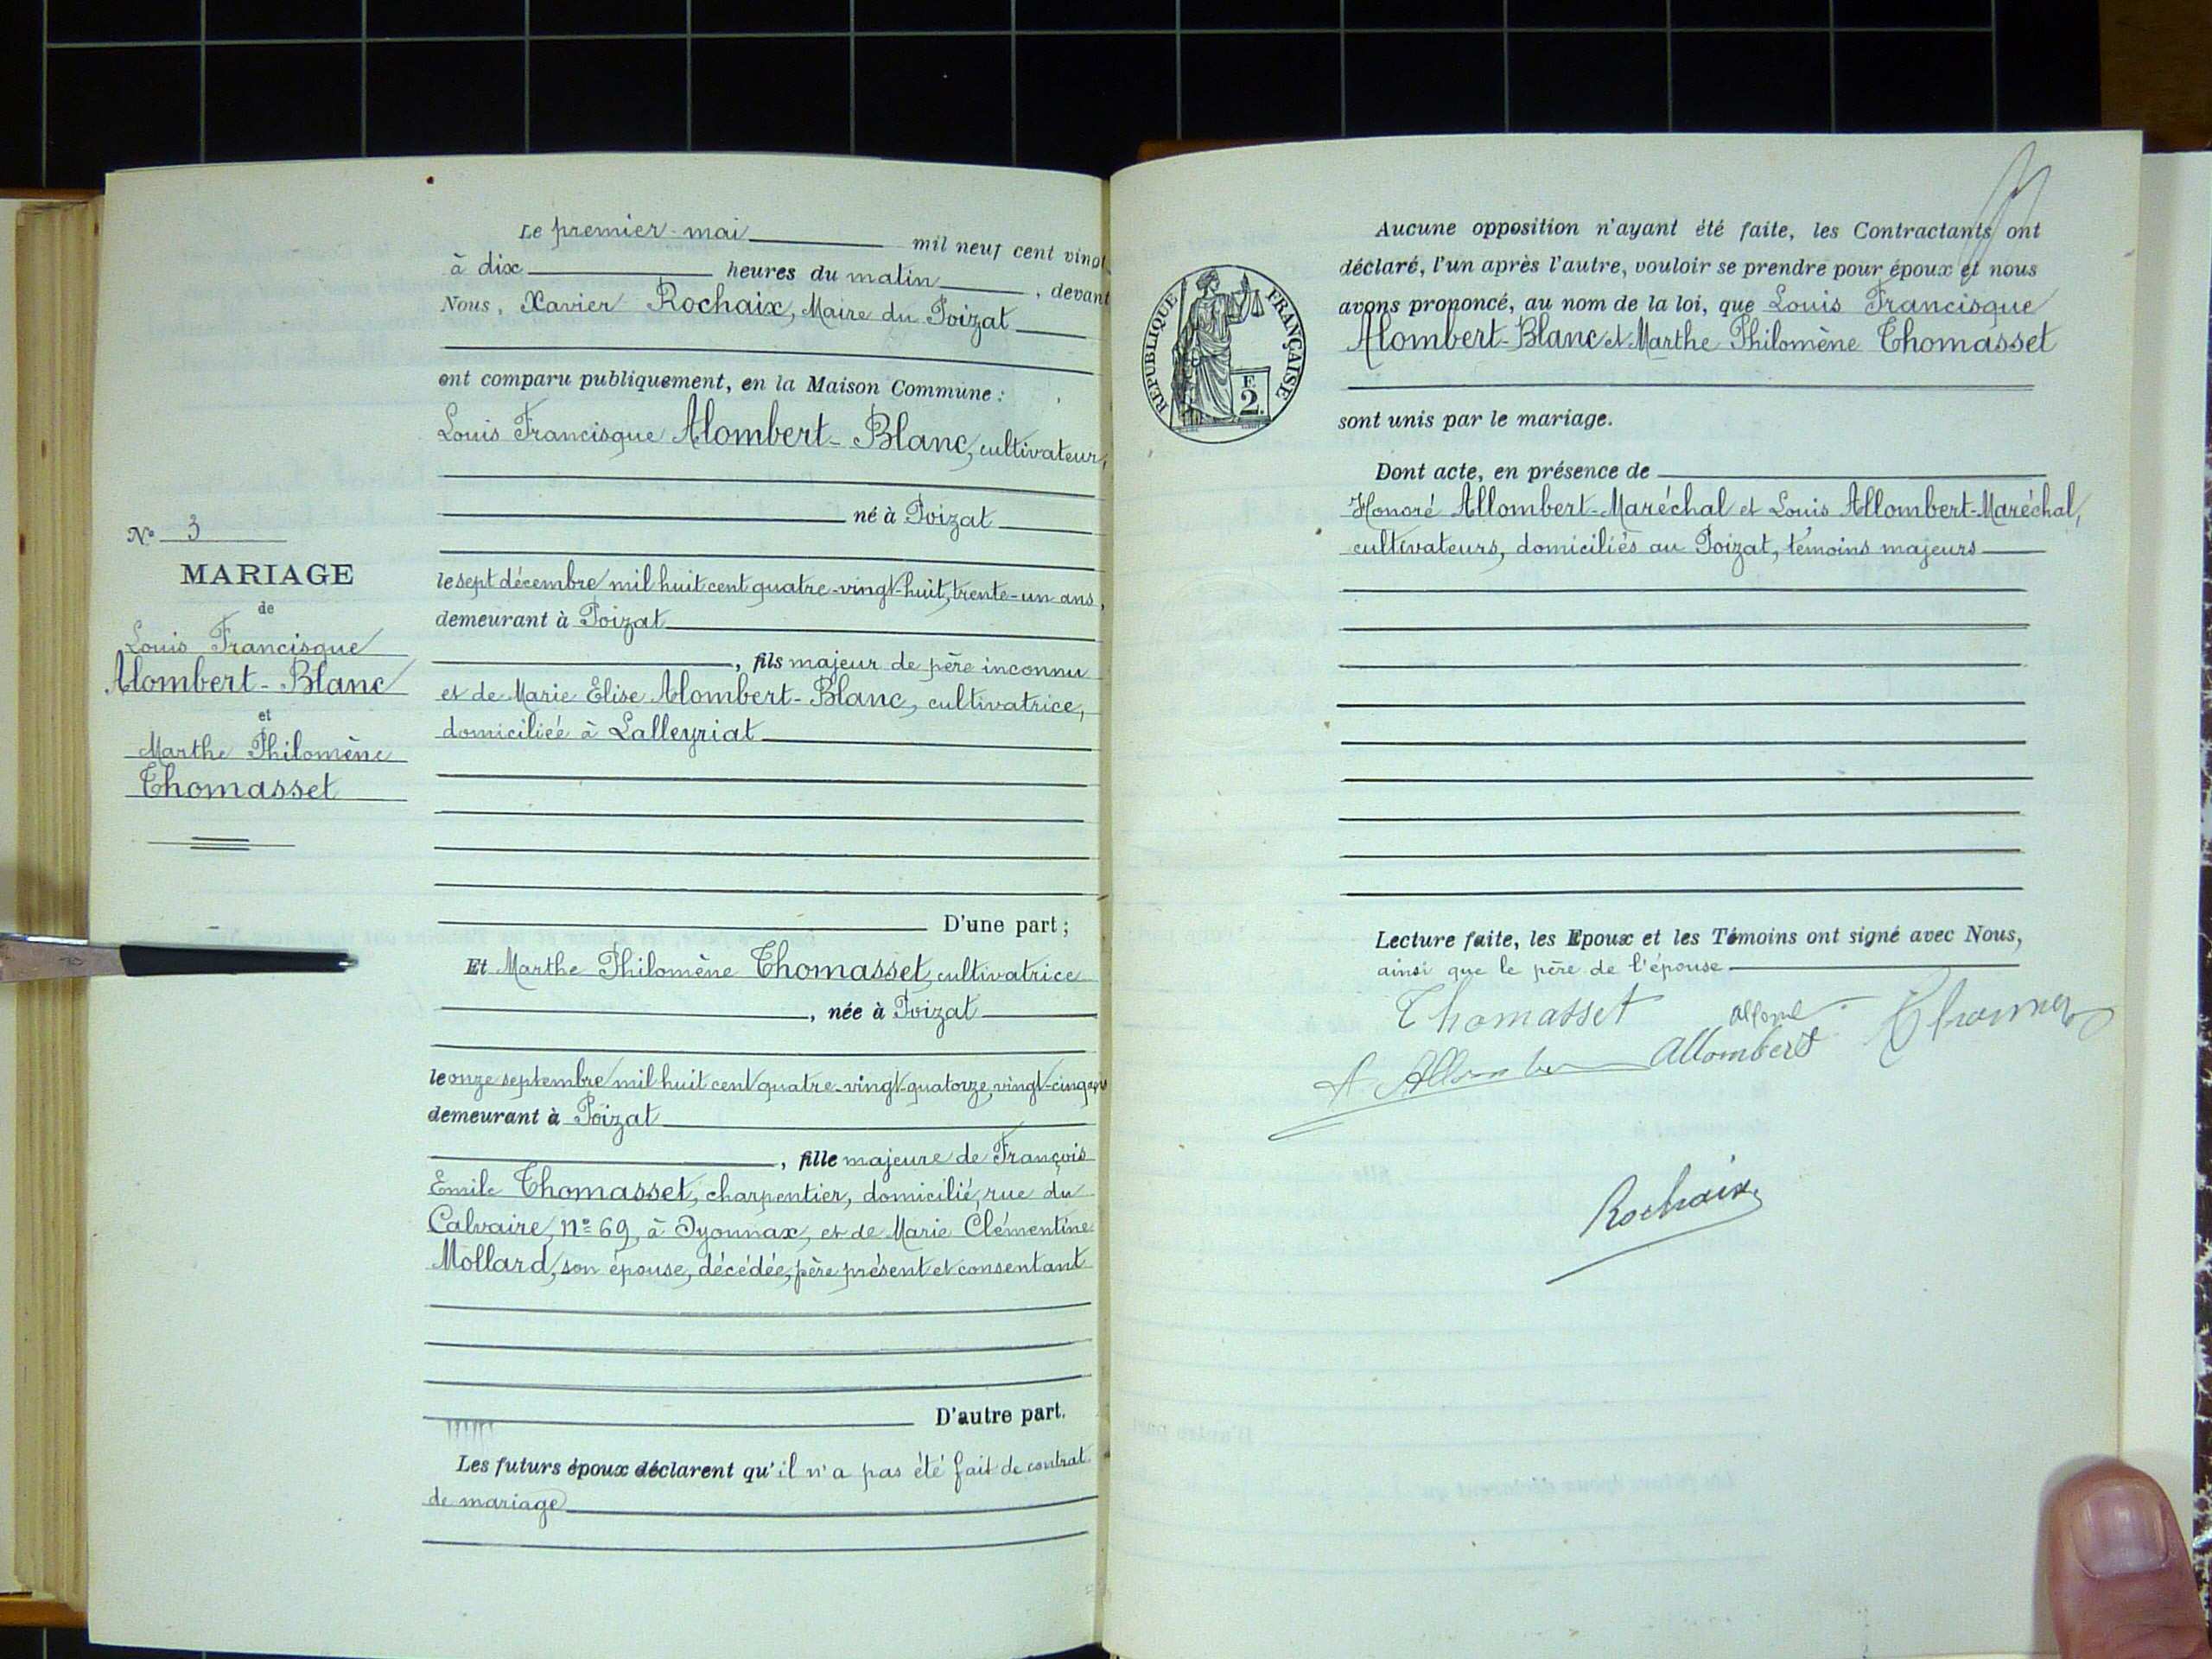 Le premier mai mil neuf cent vingt
à dix heures du matin, devant
Nous, Xavier Rochaix, Maire du Poizat
ont comparu publiquement, en la Maison Commune :
Louis Francisque Alombert-Blanc, cultivateur,
né à Poizat
le sept décembre mil huit cent quatre-vingt-huit, trente-un ans,
demeurant à Poizat
, fils majeur de père inconnu
et de Marie Elise Alombert-Blanc, cultivatrice,
domiciliée à Lalleyriat
D'une part ;
Et Marthe Philomène Thomasset, cultivatrice
, née à Poizat
le onze septembre mil huit cent quatre-vingt-quatorze, vingt-cinq ans
demeurant à Poizat
, fille majeure de François
Emile Thomasset, charpentier, domicilié, rue du
Calvaire, n° 69, à Oyonnax, et de Marie Clémentine
Mollard, son épouse, décédée, père présent et consentant
D'autre part.
Les futurs époux déclarent qu'il n'a pas été fait de contrat
de mariage
N° 3
MARIAGE
de
Louis Francisque
Alombert-Blanc
et
Marthe Philomène
Thomasset
RÉPUBLIQUE FRANÇAISE
2F.
Aucune opposition n'ayant été faite, les Contractants ont
déclaré, l'un après l'autre, vouloir se prendre pour époux et nous
avons prononcé, au nom de la loi, que Louis Francisque
Alombert-Blanc et Marthe Philomène Thomasset
sont unis par le mariage.
Dont acte, en présence de
Honoré Allombert-Maréchal et Louis Allombert-Maréchal,
cultivateurs, domiciliés au Poizat, témoins majeurs
Lecture faite, les Epoux et les Témoins ont signé avec Nous,
ainsi que le père de l'épouse
Thomasset
Allombert
Rochaix